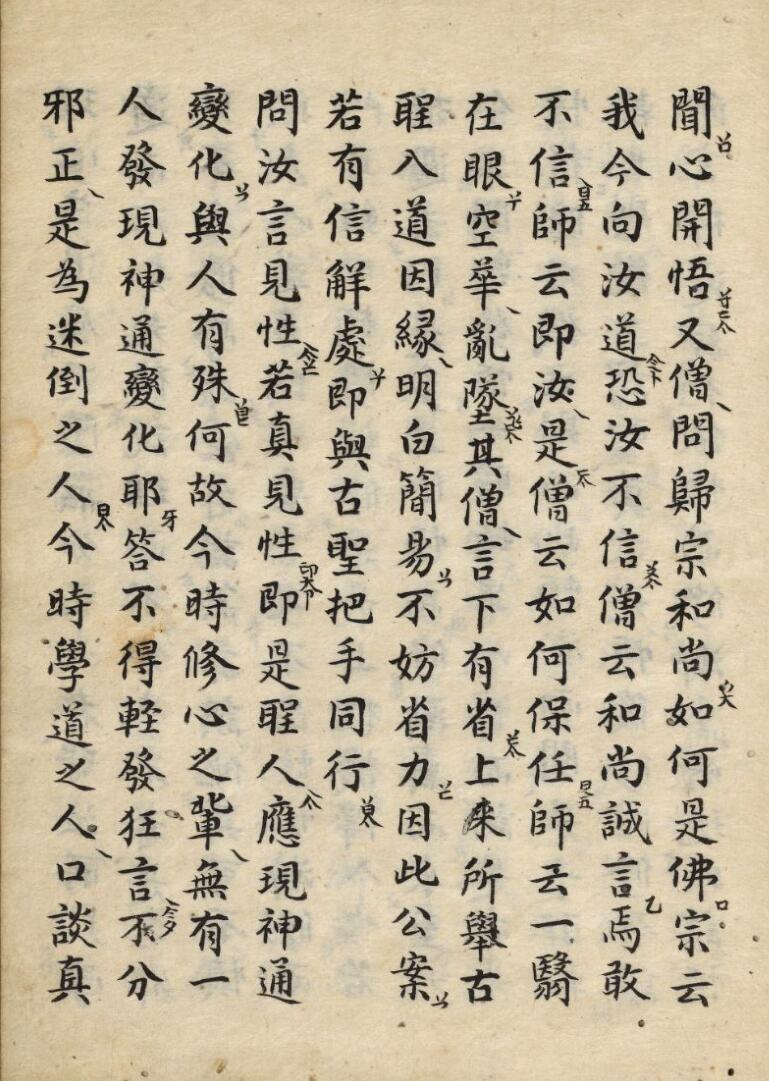 聞心開悟又僧問歸宗和尚如何是佛宗云
我今向汝道恐汝不信僧云和尚誠言焉敢
不信師云即汝是僧云如何保任師云一翳
在眼空華亂墜其僧言下有省上來所舉古
聖入道因縁明白簡易不妨省力因此公案
若有信解處即與古聖把手同行
問汝言見性若真見性即是聖人應現神通
變化與人有殊何故今時修心之輩無有一
人發現神通變化耶答不得軽發狂言不分
邪正是為迷倒之人今時學道之人口談真